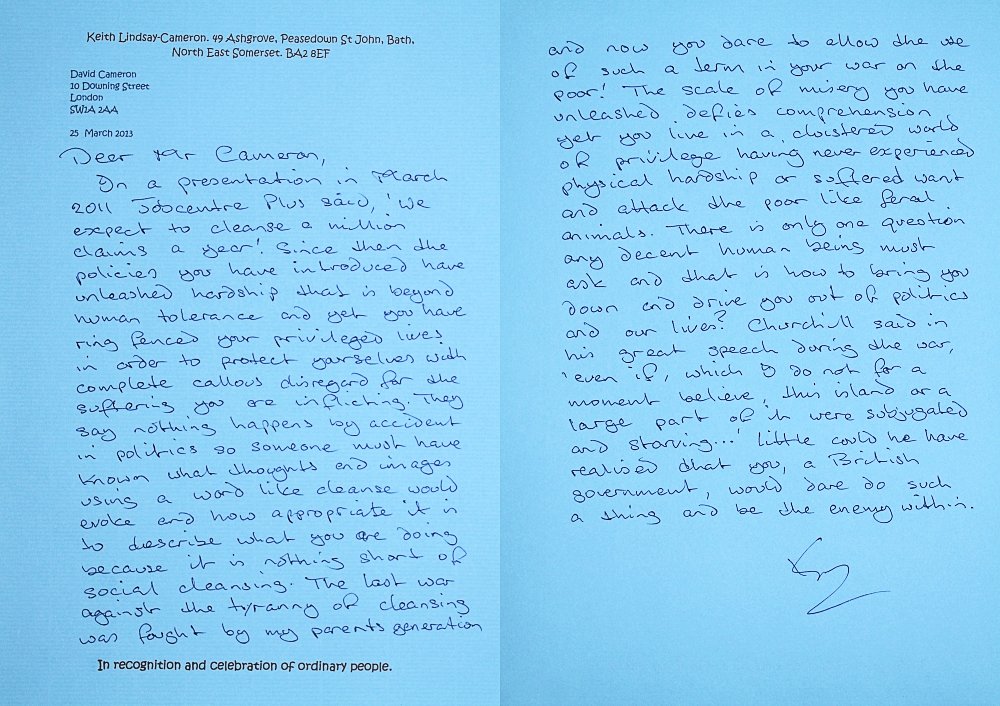 Keith Lindsay-Cameron. 49 Ashgrove, Peasedown St John, Bath,
North East Somerset. BA2 8EF
David Cameron
10 Downing Street
London
SW1A 2AA
25 March 2013
Dear Mr Cameron,
In a presentation in March
2011 Jobcentre Plus said, 'We
expect to cleanse a million
claims a year'. Since then the
policies you have introduced have
unleashed hardship that is beyond
human tolerance and yet you have
ring fenced your privileged lives
in order to protect yourselves with
complete callous disregard for the
suffering you are inflicting. They
say nothing happens by accident
in politics so someone must have
known what thoughts and images
using a word like cleanse would
evoke and how appropriate it is
to describe what you are doing
because it is nothing short of
social cleansing. The last war
against the tyranny of cleansing
was fought by my parents generation
In recognition and celebration of ordinary people.
and now you dare to allow the use
of such a term in your war on the
poor! The scale of misery you have
unleashed defies comprehension
yet you live in a cloistered world
of privilege having never experienced
physical hardship or suffered want
and attack the poor like feral
animals. There is only one question
any decent human being must
ask and that is how to bring you
down and drive you out of politics
and our lives? Churchill said in
his great speech during the war,
'even if, which I do not for a
moment believe, this island or a
large part of it were subjugated
and starving...' Little could he have
realised that you, a British
government, would dare do such
a thing and be the enemy within.